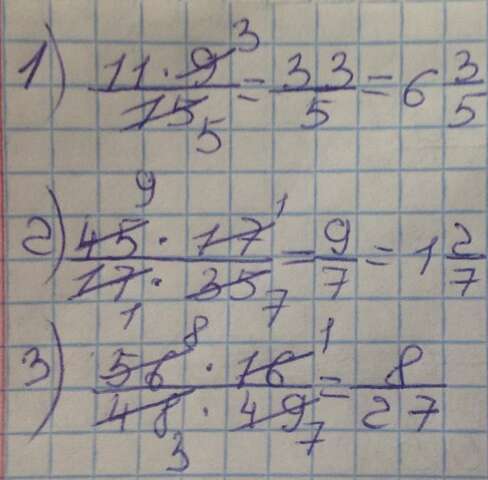 1) 11 · 9 3 / 15 5 = 33/5 = 6 3/5
2) 45 9 · 17 1 / 17 1 · 35 7 = 9/7 = 1 2/7
3) 56 8 · 16 1 / 48 3 · 49 7 = 8/27